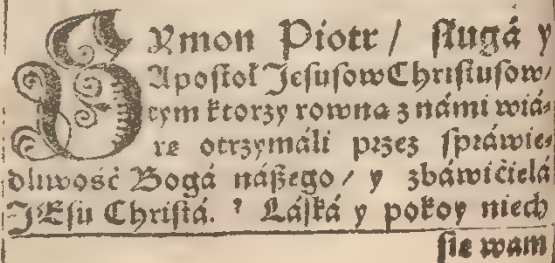 SYmon Piotr / sługá y
Apostoł JesusowChristusow /
tym ktorzy rowną z námi wiá-
rę otrzymáli przez spráwie-
dliwość Bogá nászego / y zbáwićielá
JEsu Christá. ² Láská y pokoy niech
się wam